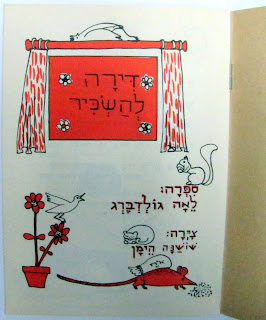 דִּירָה
לְהַשְׂכִּיר
סִפְּרָה:
לֵאָה גּוֹלְדְבֶּרְג
צִיְּרָה:
שׁוֹשַׁנָּה הֵימָן